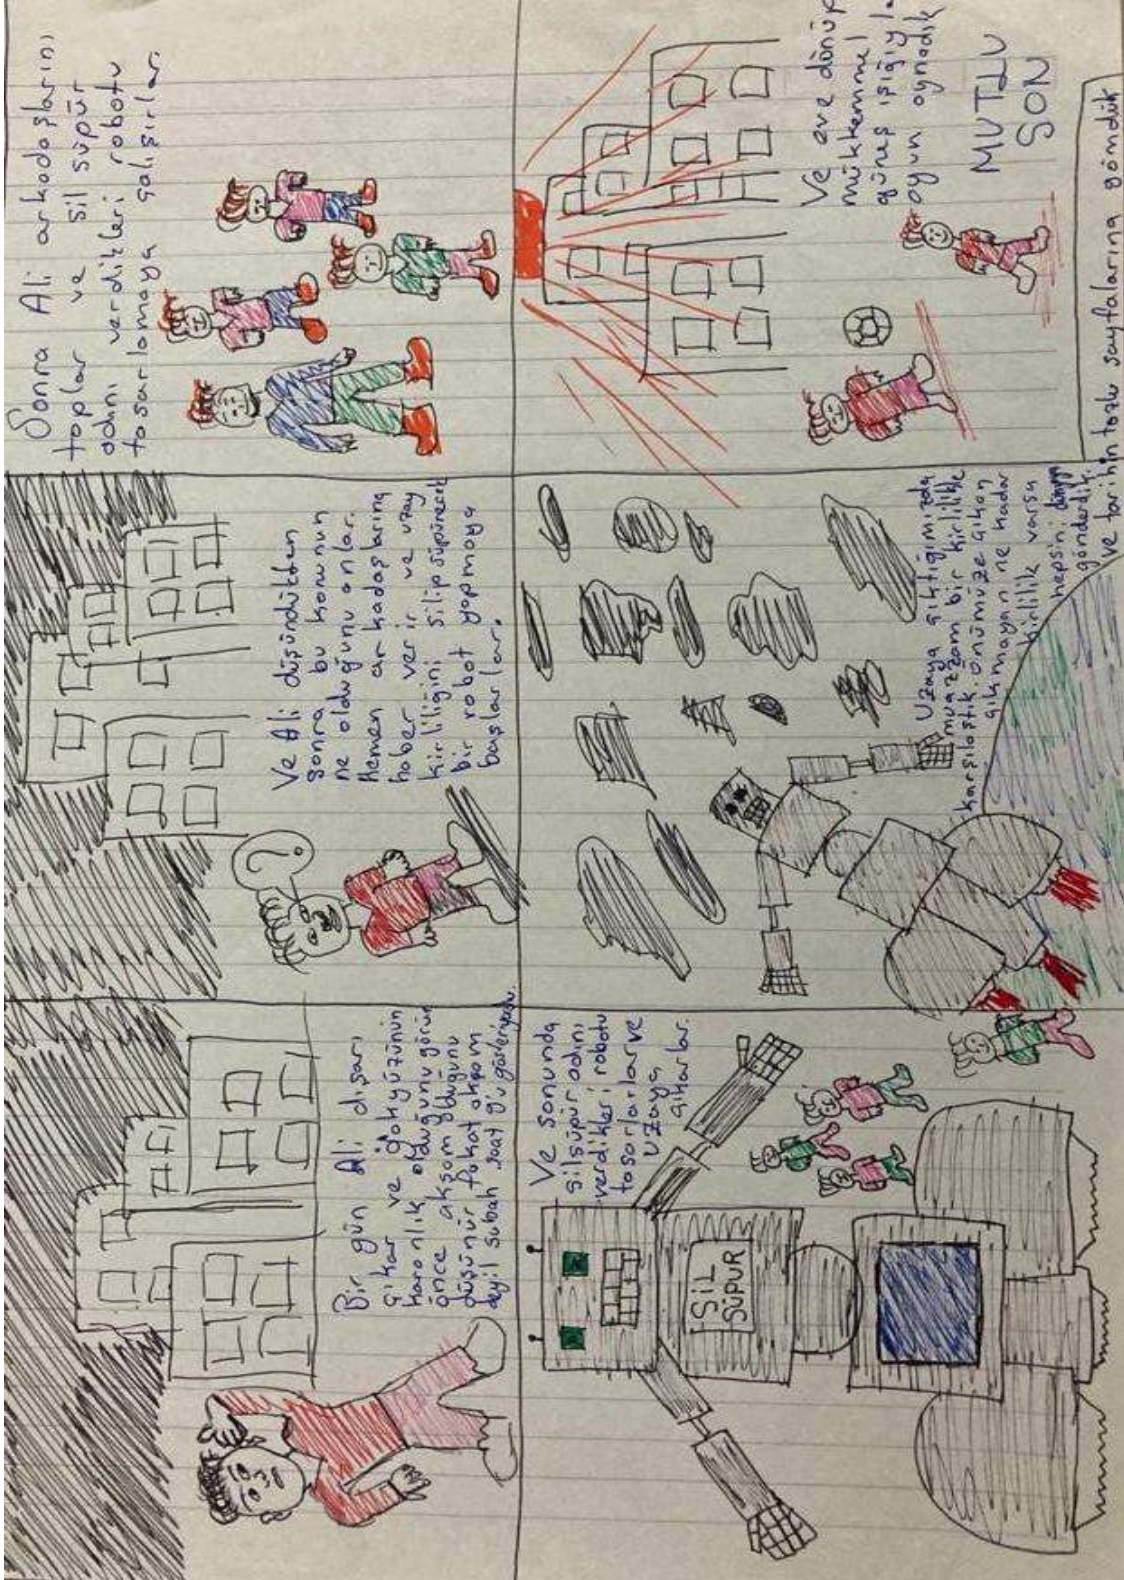 Bir gün Ali dışarı
çıkar ve gökyüzünün
karanlık olduğunu görür
önce akşam olduğunu
düşünür fakat akşam
deyil sabah saat 9'u gösteriyordu.
?
Ve Ali düşündükten
sonra bu konunun
ne olduğunu anlar.
Hemen arkadaşlarına
haber verir ve uzay
kirliliğini silip süpürecek
bir robot yapmaya
başlarlar.
Sonra Ali arkadaşlarını
toplar ve sil süpür
adını verdikleri robotu
tasarlamaya çalışırlar.
Ve sonunda
silsüpür adını
verdikleri robotu
tasarlarlar ve
uzaya
çıkarlar.
SİL
SÜPÜR
Uzaya çıktığımızda
muazzam bir kirlilikle
karşılaştık. Önümüze çıkan
çıkmayan ne kadar
kirlilik varsa
hepsini
gönderdik.
ve tarihin tozlu sayfalarına gömdük
Ve eve dönüp
mükkemmel
güneş ışığıyla
oyun oynadık
MUTLU
SON